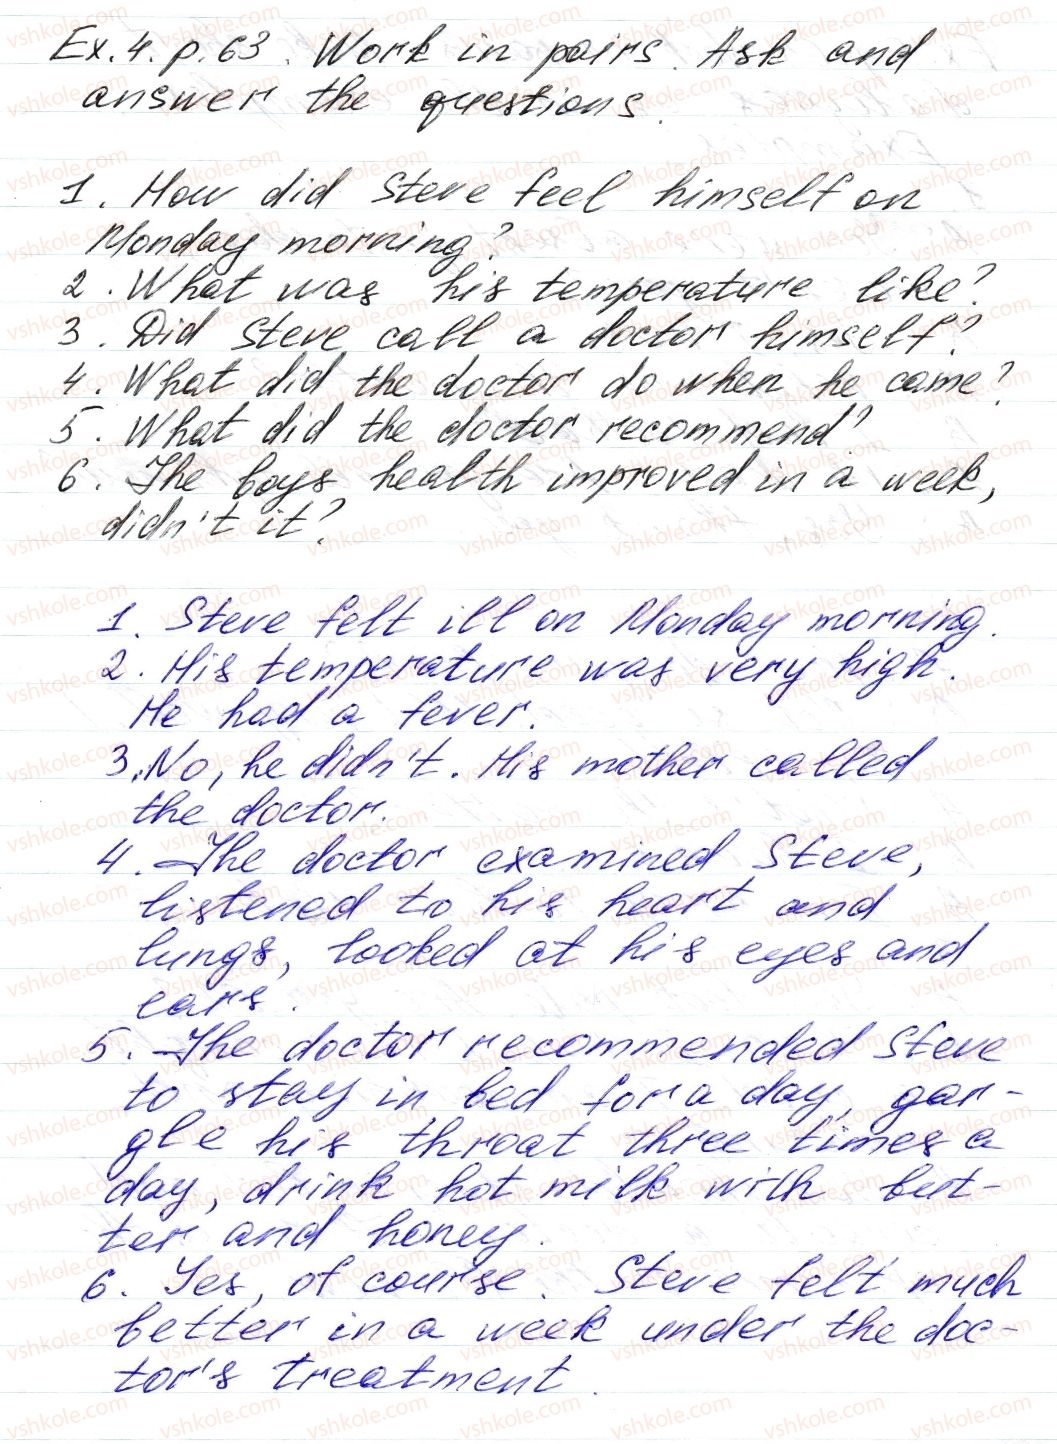 Ex.4.p.63. Work in pairs. Ask and
answer the questions.
1. How did Steve feel himself on
Monday morning?
2. What was his temperature like?
3. Did Steve call a doctor himself?
4. What did the doctor do when he came?
5. What did the doctor recommend?
6. The boys health improved in a week,
didn't it?
1. Steve felt ill on Monday morning.
2. His temperature was very high.
He had a fever.
3. No, he didn't. His mother called
the doctor.
4. The doctor examined Steve,
listened to his heart and
lungs, looked at his eyes and
ears.
5. The doctor recommended Steve
to stay in bed for a day, gar-
gle his throat three times a
day, drink hot milk with but-
ter and honey.
6. Yes, of course. Steve felt much
better in a week under the doc-
tor's treatment.